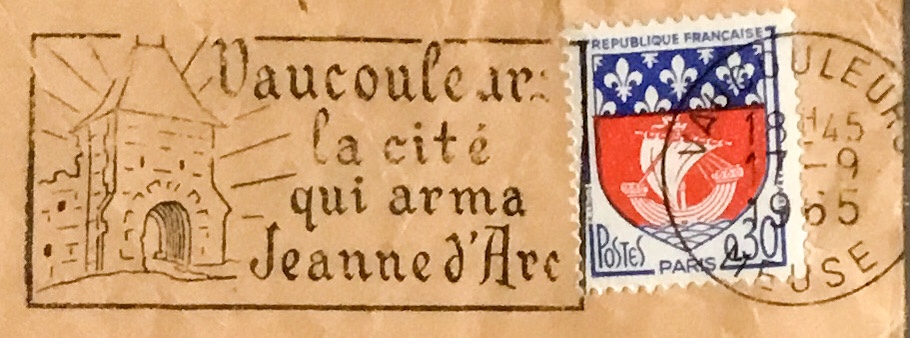 Vaucouleurs
la cité
qui arma
Jeanne d'Arc
REPUBLIQUE FRANÇAISE
POSTES
PARIS
0,30
VAUCOULEURS
18H45
17-9
1965
MEUSE